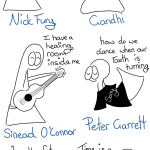 Nick Fury
Gandhi
I have a
healing
room
inside me
how do we
dance when our
Earth is
turning
Sinead O'Connor
Peter Garrett
Time is a